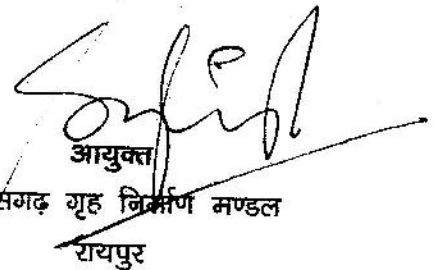 आयुक्त
सगढ़ गृह निर्माण मण्डल
रायपुर